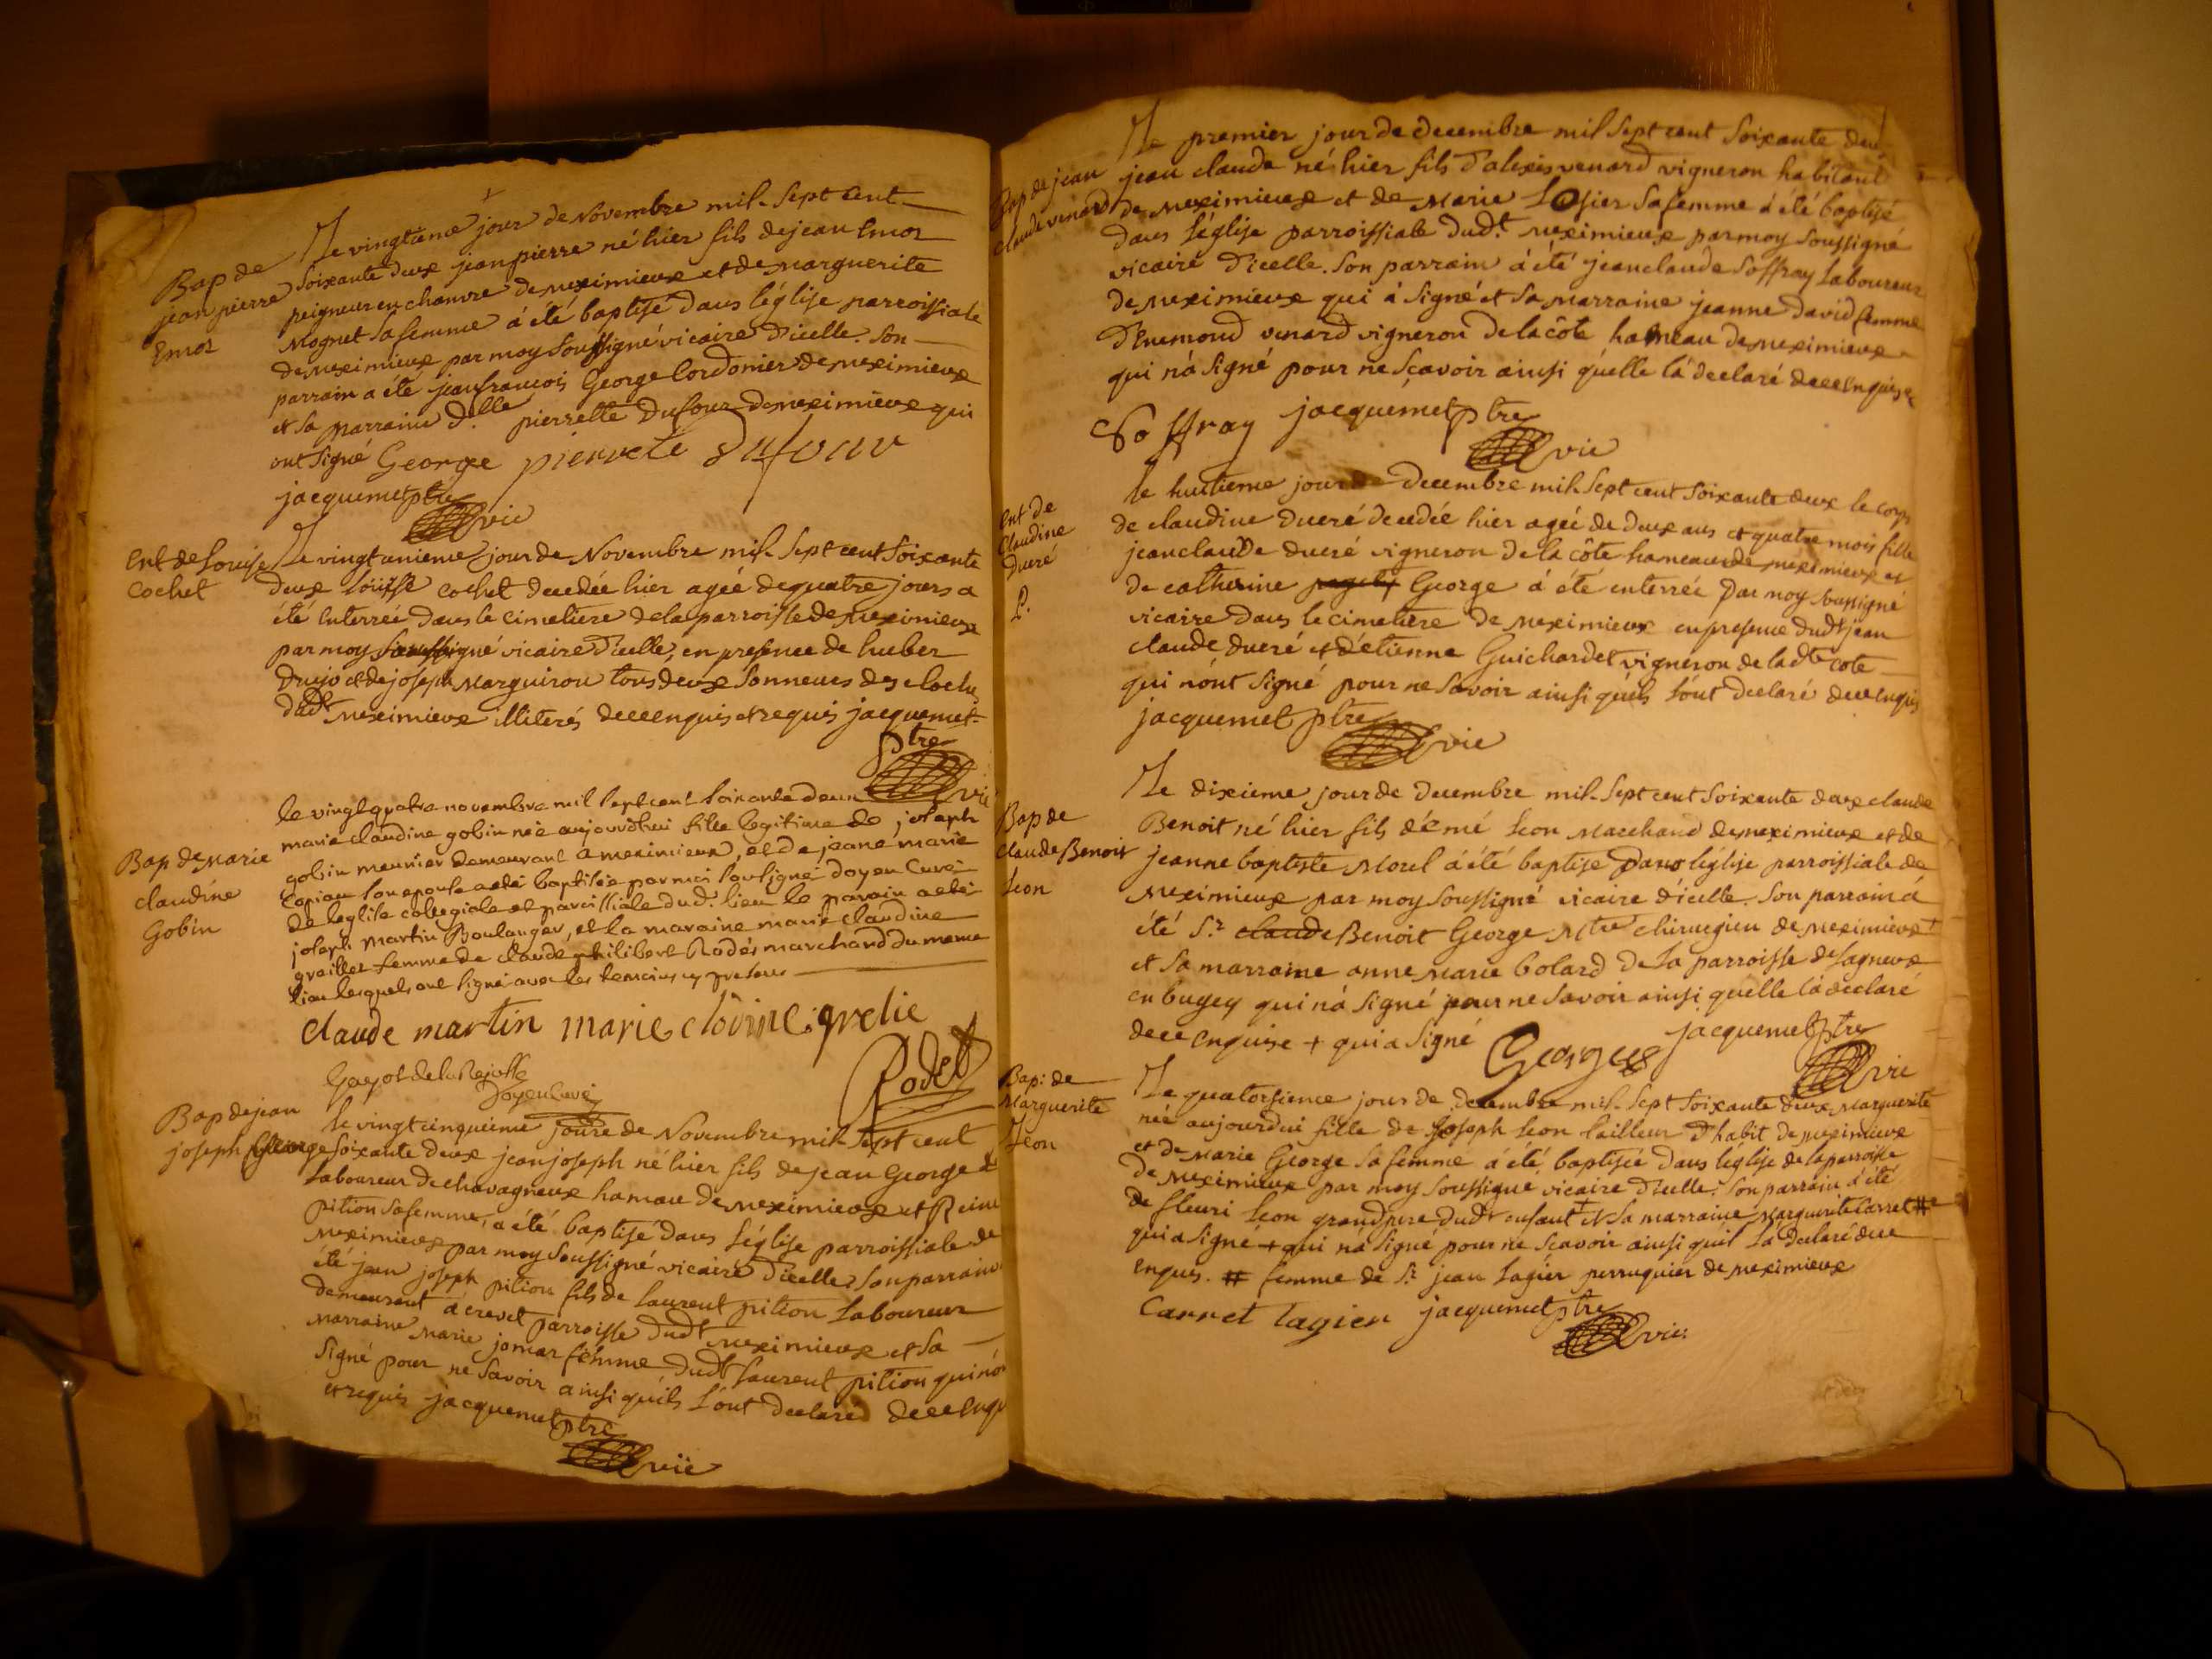 Bap de
jean pierre
Emoz
Le vingtieme jour de Novembre mil Sept cent
Soixante deux jean pierre né hier fils de jean Emoz
peigneur en chanvre de meximieux et de marguerite
Mognet sa femme á été baptisé dans léglise parroissiale
de meximieux par moy soussigné vicaire d'icelle. Son
parrain a été jean francois George Cordonier de meximieux
et sa marraine d.lle pierrette Dufour de meximieux qui
ont signé George pierrete dufour
jacquemet ptre
vic
Ent de Louise
Cochet
Le vingt unieme jour de Novembre mil Sept cent Soixante
deux Louise cochet decedée hier agée de quatre jours a
été Enterrée dans le cimetiere de la parroisse de meximieux
par moy soussigné vicaire d'icelle, en presence de huber
Drujo et de joseph Marguiron tous deux Sonneurs des cloche
dudt meximieux illiterés de ce enquis et requis jacquemet
ptre
vic
Bap de marie
claudine
Gobin
le vingt quatre novembre mil sept cent soixante deux
marie claudine gobin née aujourdhui fille legitime de joseph
gobin meunier demeurant a meximieux, et de jeane marie
copian son epouse a eté baptisée par moi soussigné doyen Curé
de leglise collegiale et paroissiale dud. lieu le parain a eté
joseph martin Boulanger, et la maraine marie claudine
greillet femme de claude philibert Rodet marchand du meme
lieu lesquels ont signé avec les temoins cy presens
claude martin marie clodine grelie
Rodet
Gayot de la Rejasse
Doyen Curé
Bap de jean
joseph George
le vingt cinquieme jour de Novembre mil Sept cent
Soixante deux jean joseph né hier fils de jean George
Laboureur de chavagneux hamau de meximieux et Reine
pition sa femme, a été baptisé dans L'église parroissiale de
meximieux par moy soussigné vicaire d'icelle. Son parrain
été jean joseph pition fils de laurent pition Laboureur
demeurant á crevet parroisse dudt meximieux et sa
marraine marie jomar femme dudt laurent pition qui nón
signé pour ne Savoir ainsi quils l'ont declaré de ce enqu
et requis jacquemet ptre
vic
Bap de jean
claude venard
Le premier jour de decembre mil Sept cent Soixante deux
jean claude né hier fils d'alexis venard vigneron habitant
de meximieux et de Marie Losier sa femme á été baptisé
dans l'église parroissiale dudt meximieux par moy soussigné
vicaire d'icelle. Son parrain á été jean claude Soffray Laboureur
de meximieux qui á signé et sa marraine jeanne David femme
d'Enemond venard vigneron de la côte hameau de meximieux
qui ná signé pour ne sçavoir ainsi quélle lá declaré de ce enquise
Soffray jacquemet ptre
vic
Ent de
Claudine
Dueré
P.
le huitieme jour de Decembre mil Sept cent Soixante deux le corp
de claudine dueré decedée hier agée de deux ans et quatre mois fille
jean claude dueré vigneron de la côte hameau de meximieux et
de catherine George á été enterrée par moy soussigné
vicaire dans le cimetiere de meximieux en presence dudt jean
claude dueré et détienne Guichardet vigneron de ladte cote
qui nónt signé pour ne savoir ainsi quéls lónt declaré de ce enquis
jacquemet ptre
vic
Bap de
Claude Benoit
Leon
Le dixieme jour de Decembre mil Sept cent Soixante deux claude
Benoit né hier fils d'émé Leon Marchand de meximieux et de
jeanne baptiste Morel á été baptisé dans léglise parroissiale de
meximieux par moy soussigné vicaire d'icelle. Son parrain á
été Sr. claude Benoit George Mtre chirugien de meximieux +
et sa marraine anne marie bolard de la parroisse de lagneux
en bugey qui ná signé pour ne savoir ainsi quelle lá declaré
de ce enquise + qui a signé George jacquemet ptre
vic
Bap: de
Marguerite
Leon
Le quatorsieme jour de decembre mil Sept Soixante deux Marguerite
née aujourdui fille de joseph Leon tailleur d'habit de meximieux
et de marie George sa femme á été baptisée dans léglise de la parroisse
de meximieux par moy soussigné vicaire d'icelle. Son parrain á été
de fleuri Leon grand pere dudt enfant + et sa marraine Marguerite Carret #
qui a signé + qui ná signé pour ne scavoir ainsi quil lá declaré de ce
enquis. # femme de Sr. jean Lagier perruquier de meximieux
Carret lagier jacquemet ptre
vic